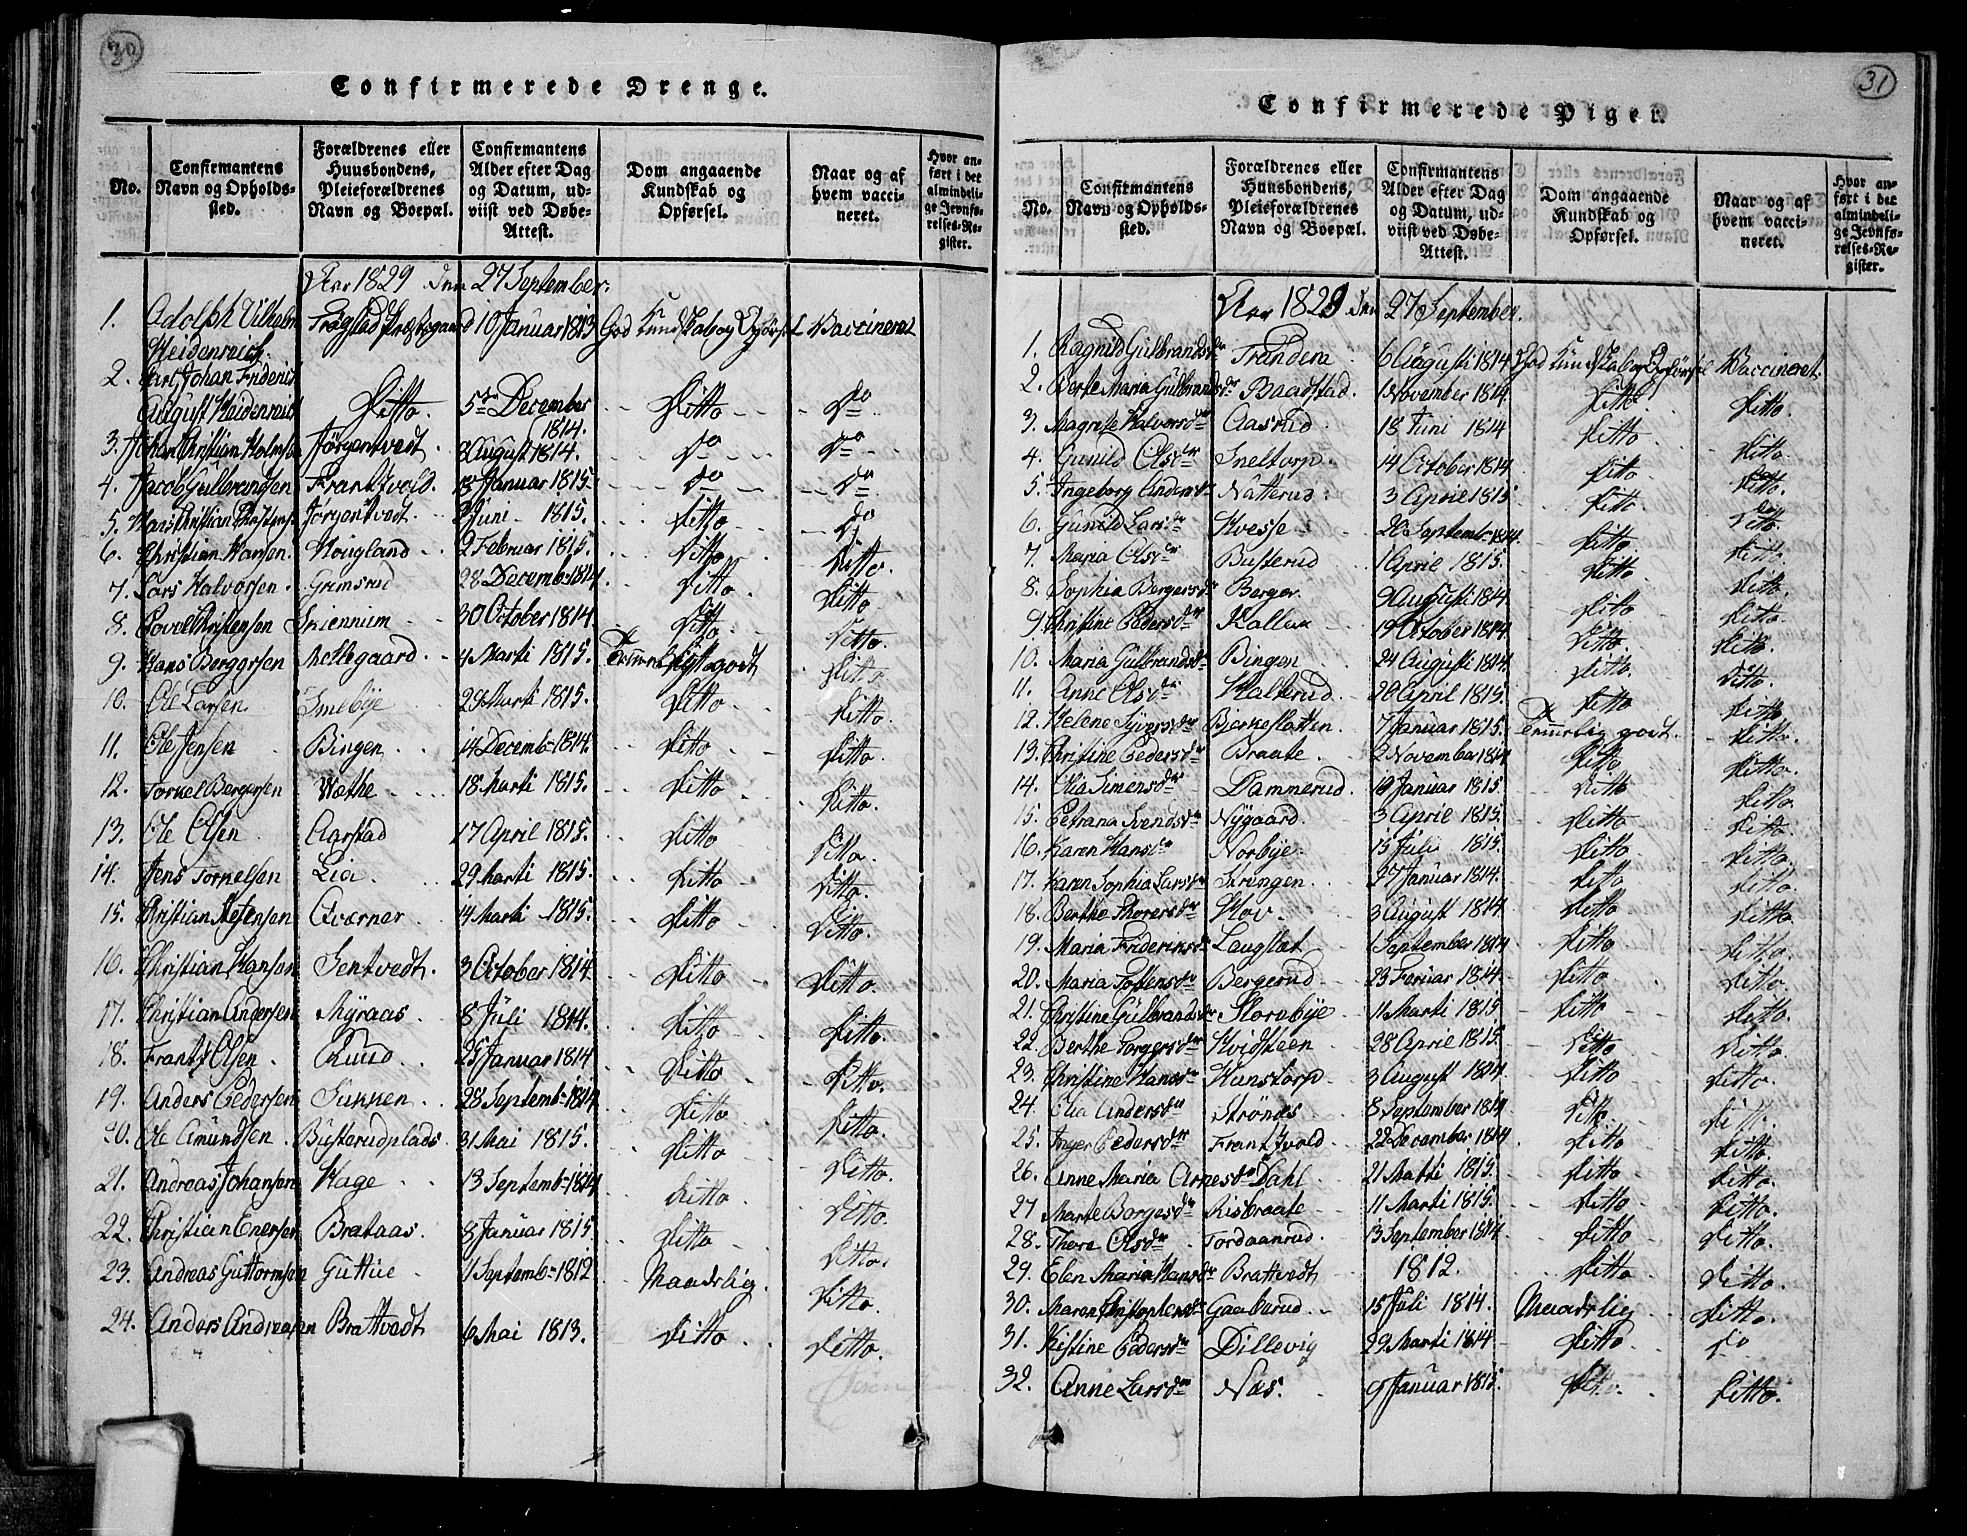 30
Confirmerede Drenge.
No.
Confirmantens Navn og Opholds-sted.
Forældrenes eller Huusbondens, Pleieforældrenes Navn og Boepæl.
Confirmantens Alder efter Dag og Datum, ud-viist ved Døbe-Attest.
Dom angaaende Kundskab og Opførsel.
Naar og af hvem vacci-neret.
Hvor an-ført i det almindeli-ge Jevnfø-relses-Re-gister.
Aar 1829 den 27 September.
1. Adolph Vilhelm Heidenreich. Trøgstad Præstegaard 10 Januar 1813 God Kundskab og Opførsel Vaccineret
2. Carl Johan Friderich August Heidenreich Ditto. 5te December 1814. Ditto Do
3. Johan Christian Holmsen Jørgentvedt. 8 August 1814. Do Do
4. Jacob Gulbrandsen Frantzvold. 18 Januar 1815. Do Do
5. Hans Christian Christensen Jørgentvedt. 2 Juni 1815. Ditto Do
6. Christian Hansen. Hougland 2 Februar 1815. Ditto Ditto.
7. Lars Halvorsen. Grimsrud 28 Decemb. 1814. Ditto Ditto
8. Povel Christensen Skiennum 30 October 1814. Ditto Ditto.
9. Hans Bergersen Melleg­aard 4 Marti 1815. Temmeligt godt Ditto
10. Ole Larsen Smebye 29 Marti 1815. Ditto Ditto.
11. Ole Jensen Bingen 14 Decemb. 1814. Ditto Ditto.
12. Torkel Bergersen Wæthe 18 Marti 1815. Ditto Ditto.
13. Ole Olsen Aarstad 17 April 1815. Ditto Ditto.
14. Jens Tornelsen Lier 29 Marti 1815. Ditto Ditto.
15. Christian Qværner 14 Marti 1815. Ditto Ditto.
16. Christian Hansen Sentvedt. 3 October 1814. Ditto Ditto.
17. Christian Andersen Myraas 8 Juli 1814. Ditto Ditto.
18. Frantz Olsen. Ruud 25 Januar 1814 Ditto Ditto.
19. Anders Pedersen Sukken 28 Septemb. 1814 Ditto
20. Ole Amundsen. Busterudplads 31 Mai 1815. Ditto Ditto.
21. Andreas Johansen Hage 13 Septemb. 1814 Ditto Ditto.
22. Christian Enersen Brataas 8 Januar 1815 Ditto Ditto.
23. Andreas Guttormsen Guttue 1 Septemb. 1812 Maadelig. Ditto.
24. Anders Andreasen Brattvedt 6 Mai 1813. Ditto Ditto.
31
Confirmerede Piger.
No.
Confirmantens Navn og Opholds-sted.
Forældrenes eller Huusbondens, Pleieforældrenes Navn og Boepæl.
Confirmantens Alder efter Dag og Datum, ud-viist ved Døbe-Attest.
Dom angaaende Kundskab og Opførsel.
Naar og af hvem vacci-neret.
Hvor an-ført i det almindeli-ge Jevnfø-relses-Re-gister.
Aar 1829 den 27 September.
1. Ragnild Gulbrandsdr Frandera 6 Augusti 1814 God Kundskab og Opførsel Vaccineret
2. Berte Maria Gulbrandsdr Baadstad. 1 November 1814. Ditto Ditto.
3. Magrete Halvorsdr Aasrud 18 Juni 1814 Ditto Ditto.
4. Gunild Olsdr Sneltorp. 14 October 1814 Ditto Ditto.
5. Ingeborg Andersdr Natterud 3 April 1815 Ditto Ditto.
6. Gunild Larsdr Kvesse 20 Septemb. 1814. Ditto Ditto.
7. Maria Olsdr Busterud 1 April 1815. Ditto Ditto.
8. Sophia Bergersdr Berger. 9 Augusti 1814. Ditto Ditto.
9. Christine Pedersdr Kallax 19 October 1814. Ditto Ditto.
10. Maria Gulbrandsdr Bingen 24 Augusti 1814. Ditto. Ditto.
11. Anne Olsdr Kallerud 20 April 1815. Ditto Ditto.
12. Helene Syversdr Bierkeslatten 7 Januar 1815. Temmelig godt. Ditto.
13. Christine Pedersdr Braate. 2 November 1814 Ditto Ditto.
14. Olia Simensdr Dammerud. 10 Januar 1815. Ditto Ditto.
15. Petrana Svendsdr Nygaard. 3 April 1815. Ditto Ditto.
16. Karen Hansdr Norbye. 15 Juli 1815. Ditto Ditto.
17. Karen Sophia Larsdr Strengen 27 Januar 1814. Ditto Ditto.
18. Berthe Thoresdr Hov. 3 August 1814. Ditto Ditto.
19. Maria Fridericksdr Laugslet 1 September 1814 Ditto Ditto.
20. Maria Bergerud 23 Feruar 1814 Ditto Ditto.
21. Christine Gulbrandsdr Storebye 11 Marti 1815 Ditto Ditto.
22. Berthe Torgersdr Hvidsteen 28 April 1815. Ditto Ditto.
23. Christine Hansdr Hunstorp 3 August 1814. Ditto Ditto.
24. Olia Andersdr Strønes 8 September 1814 Ditto Ditto.
25. Inger Pedersdr Frantzvold 22 December 1814 Ditto Ditto.
26. Anne Maria Arnesdr Dahl. 21 Marti 1815. Ditto Ditto.
27 Marte Borgesdr Risbraate 11 Marti 1815. Ditto Ditto.
28. Thore Olsdr Tordaanrud. 13 September 1814. Ditto Ditto.
29. Elen Maria Hansdr Brattvedt 1812. Ditto Ditto.
30. Maren Christophersdr Gaaberud 15 Juli 1814. Maadelig Ditto.
31. Kistine Pedersdr Dillevig 29 Marti 1814 Ditto Do
32. Anne Larsdr Næs. 9 Januar 1815. Ditto Ditto.